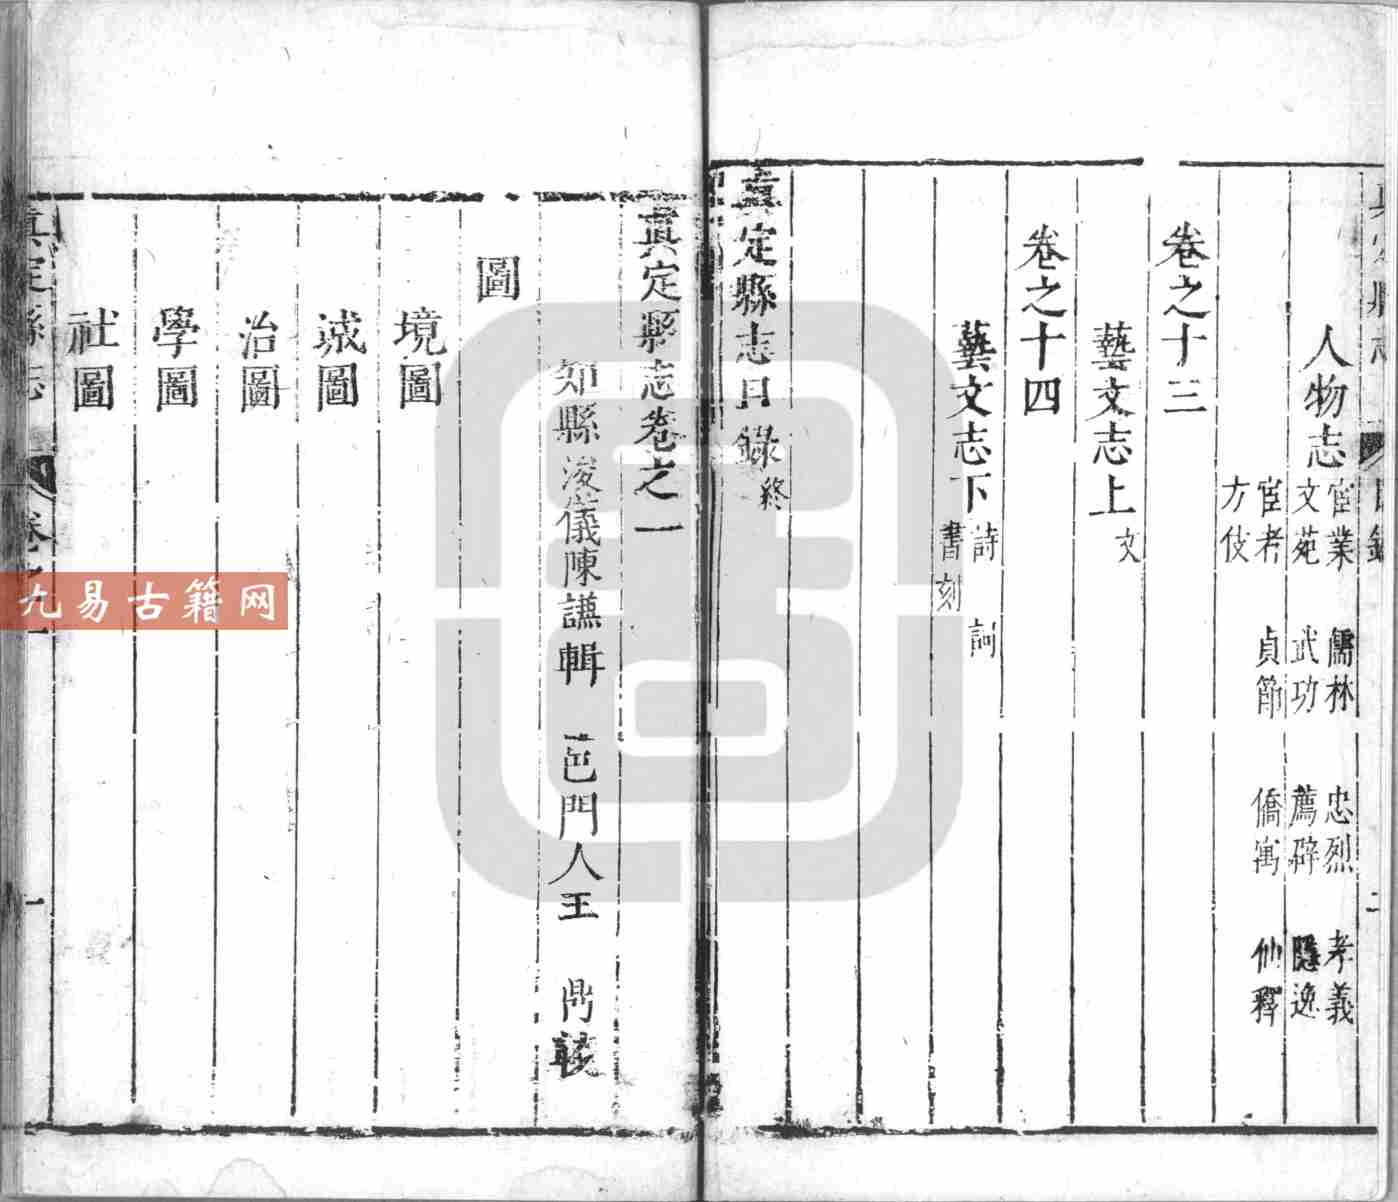 人物志
宦業　儒林　忠烈　孝義
文苑　武功　薦辟　隱逸
宦考　貞節　僑寓　仙釋
方伎
卷之十三
藝文志上 文
卷之十四
藝文志下 詩　詞
書刻
真定縣志目錄終
真定縣志卷之一
知縣浚儀陳謙輯　邑門人王　鼎
圖
境圖
城圖
治圖
學圖
社圖
真定縣志　卷之一　一
九易古籍网